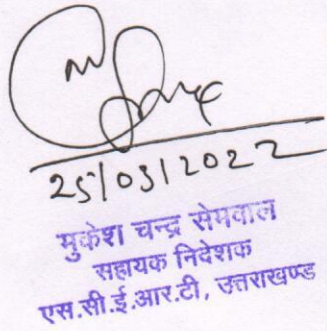 25/03/2022
मुकेश चन्द्र सेमवाल
सहायक निदेशक
एस.सी.ई.आर.टी, उत्तराखण्ड